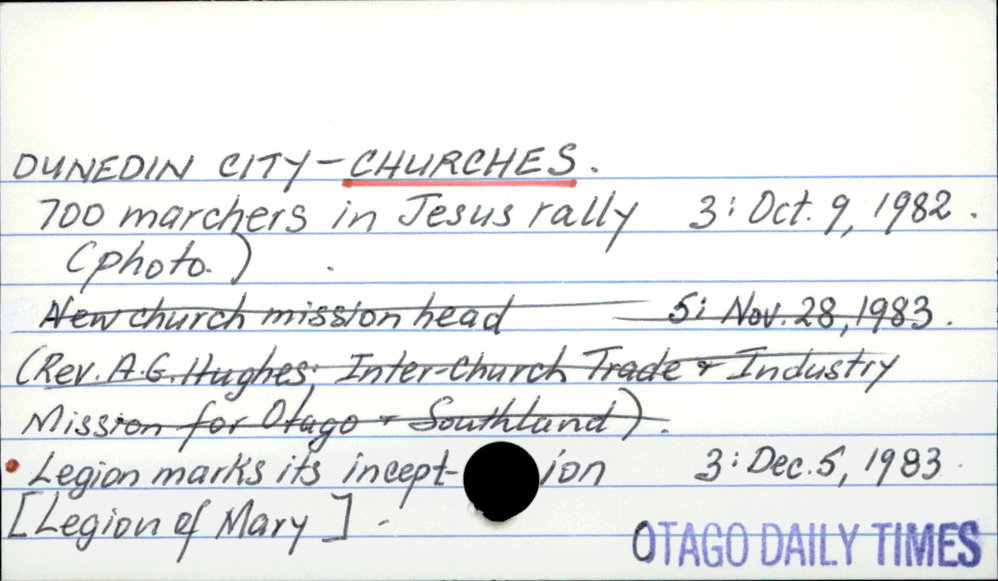 DUNEDIN CITY - CHURCHES.
700 marchers in Jesus rally 3: Oct. 9, 1982.
(photo.)
New church mission head 5: Nov. 28, 1983.
(Rev. A.G. Hughes; Inter-Church Trade & Industry
Mission for Otago & Southland).
Legion marks its incept-ion 3: Dec. 5, 1983.
[Legion of Mary].
OTAGO DAILY TIMES